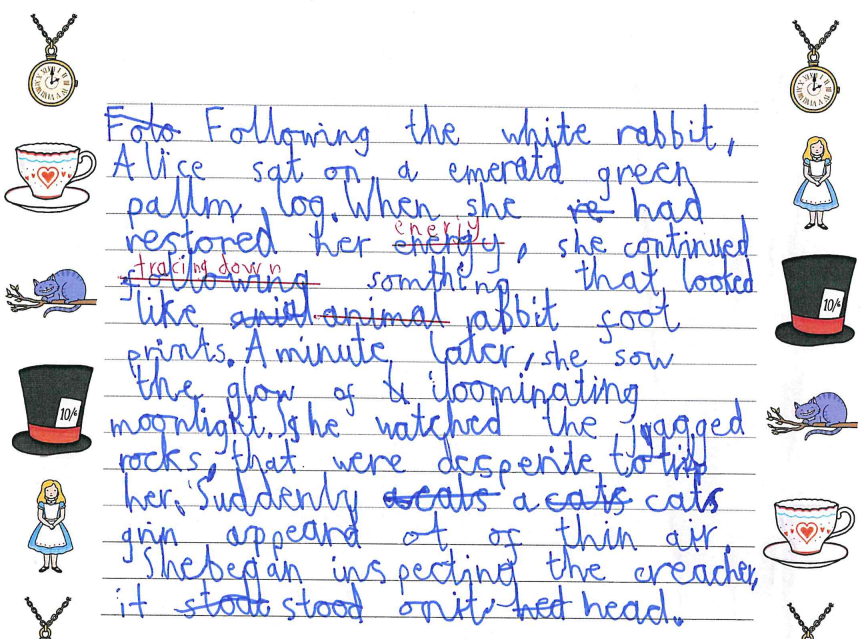 Foto Following the white rabbit,
Alice sat on a emerald green
pallm log. When she re had
energy
restored her energy, she continued
tracing down
following somthing that looked
like anial animal rabbit foot
prints. A minute later, she sow
the glow of iloominating
moonlight. She watched the jagged
rocks, that were desperite to trip
her. Suddenly a cats a cats cats
grin appeard ot of thin air.
She began inspecting the creacher,
it stoot stood on it head.
10/6
10/6